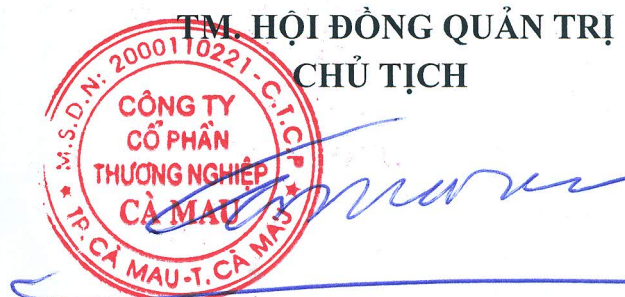 TM. HỘI ĐỒNG QUẢN TRỊ
CHỦ TỊCH
M.S.D.N: 2000110221-C.T.C.P
CÔNG TY
CỔ PHẦN
THƯƠNG NGHIỆP
CÀ MAU
TP. CÀ MAU-T. CÀ MAU